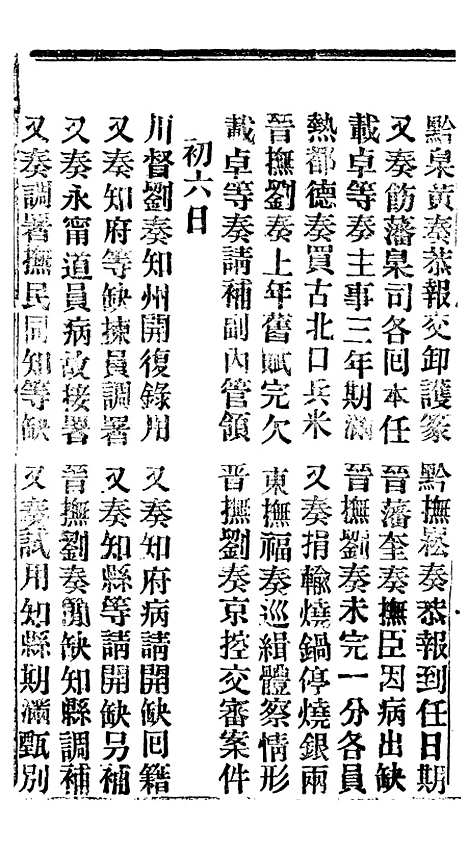 黔臬黃奏恭報交卸護篆　黔撫崧奏恭報到任日期
又奏飭藩臬司各回本任　晉藩奎奏撫臣因病出缺
載卓等奏主事三年期滿　晉撫劉奏未完一分各員
熱都德奏買古北口兵米　又奏捐輸燒鍋停燒銀兩
晉撫劉奏上年舊賦完欠　東撫福奏巡緝體察情形
載卓等奏請補副內管領　晉撫劉奏京控交審案件
初六日
川督劉奏知州開復錄用　又奏知府病請開缺回籍
又奏知府等缺揀員調署　又奏知縣等請開缺另補
又奏永甯道員病故接署　晉撫劉奏簡缺知縣調補
又奏調署撫民同知等缺　又奏試用知縣期滿甄別